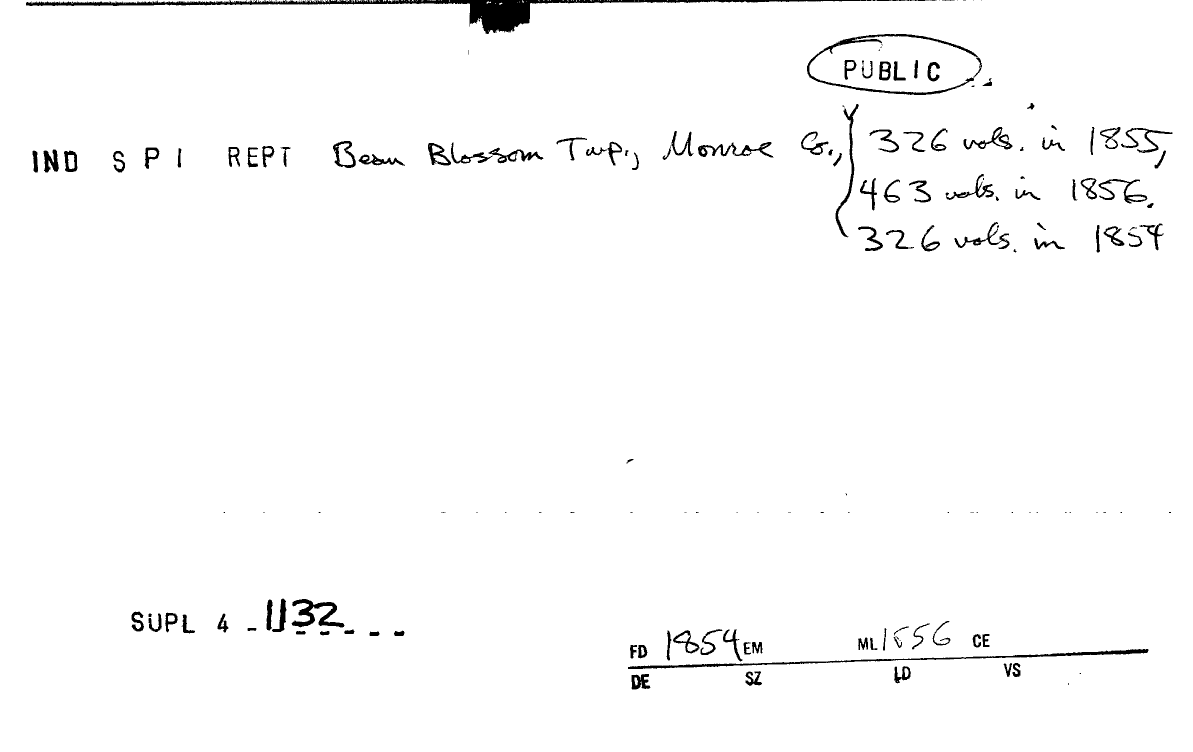 PUBLIC
IND S P I REPT Bean Blossom Twp., Monroe Co., 326 vols. in 1855,
463 vols. in 1856.
326 vols. in 1854
SUPL 4 - 1132
FD 1854 EM ML 1856 CE
DE SZ LD VS